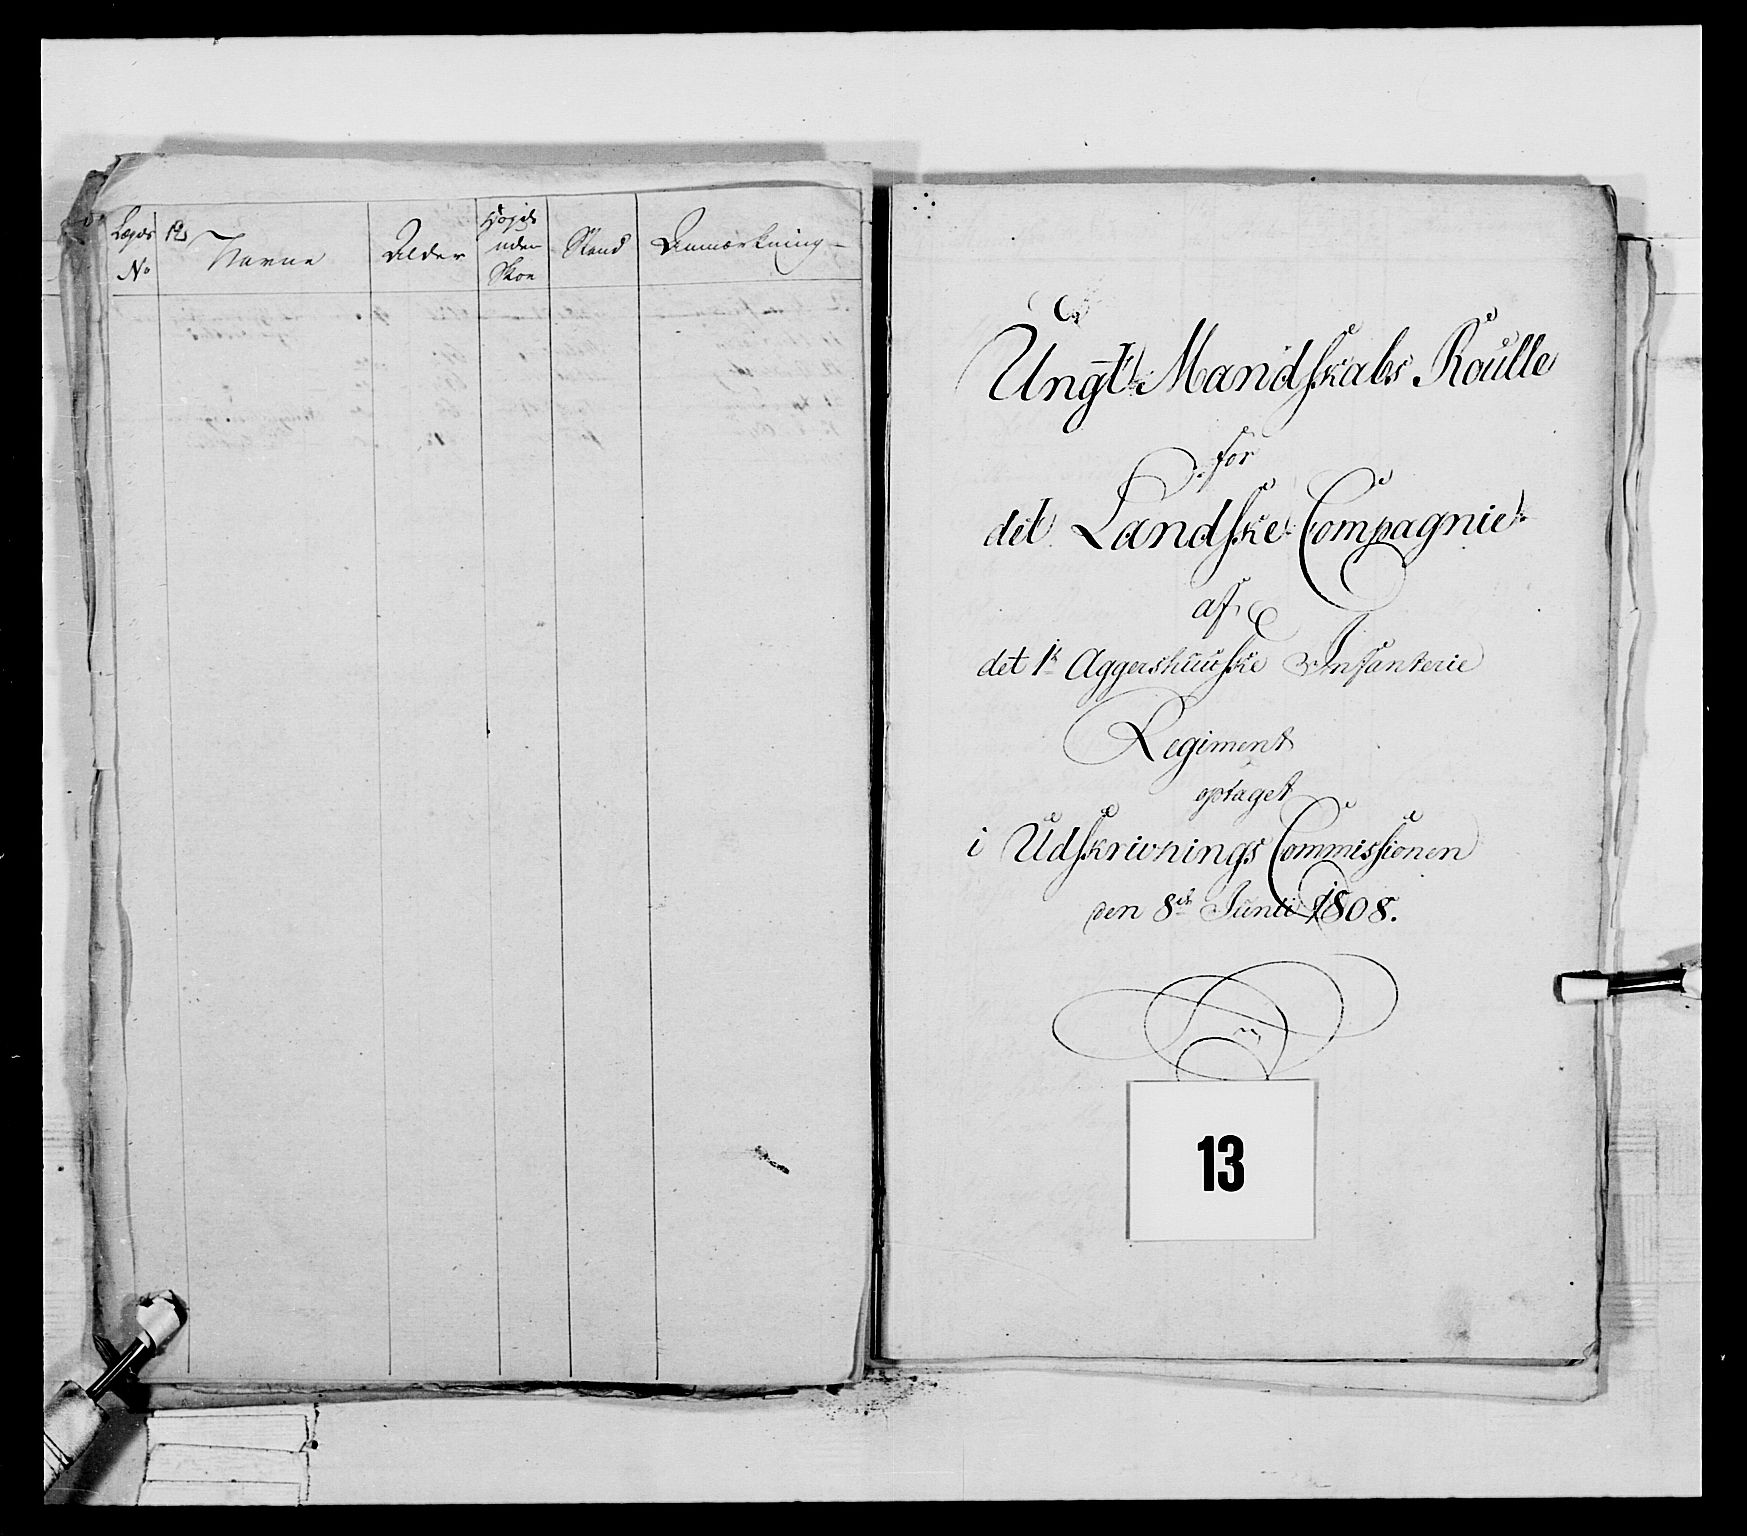 Lægds No
Navne
Alder
Højde uden Skoe
Stand
Anmærkning
Ungt Mandskabs Roulle
for
det Landske Compagnie
af
det 1te Aggershuuske Infanterie
Regiment
optaget
i Udskrivnings Commissionen
den 8de Junii 1808.
13